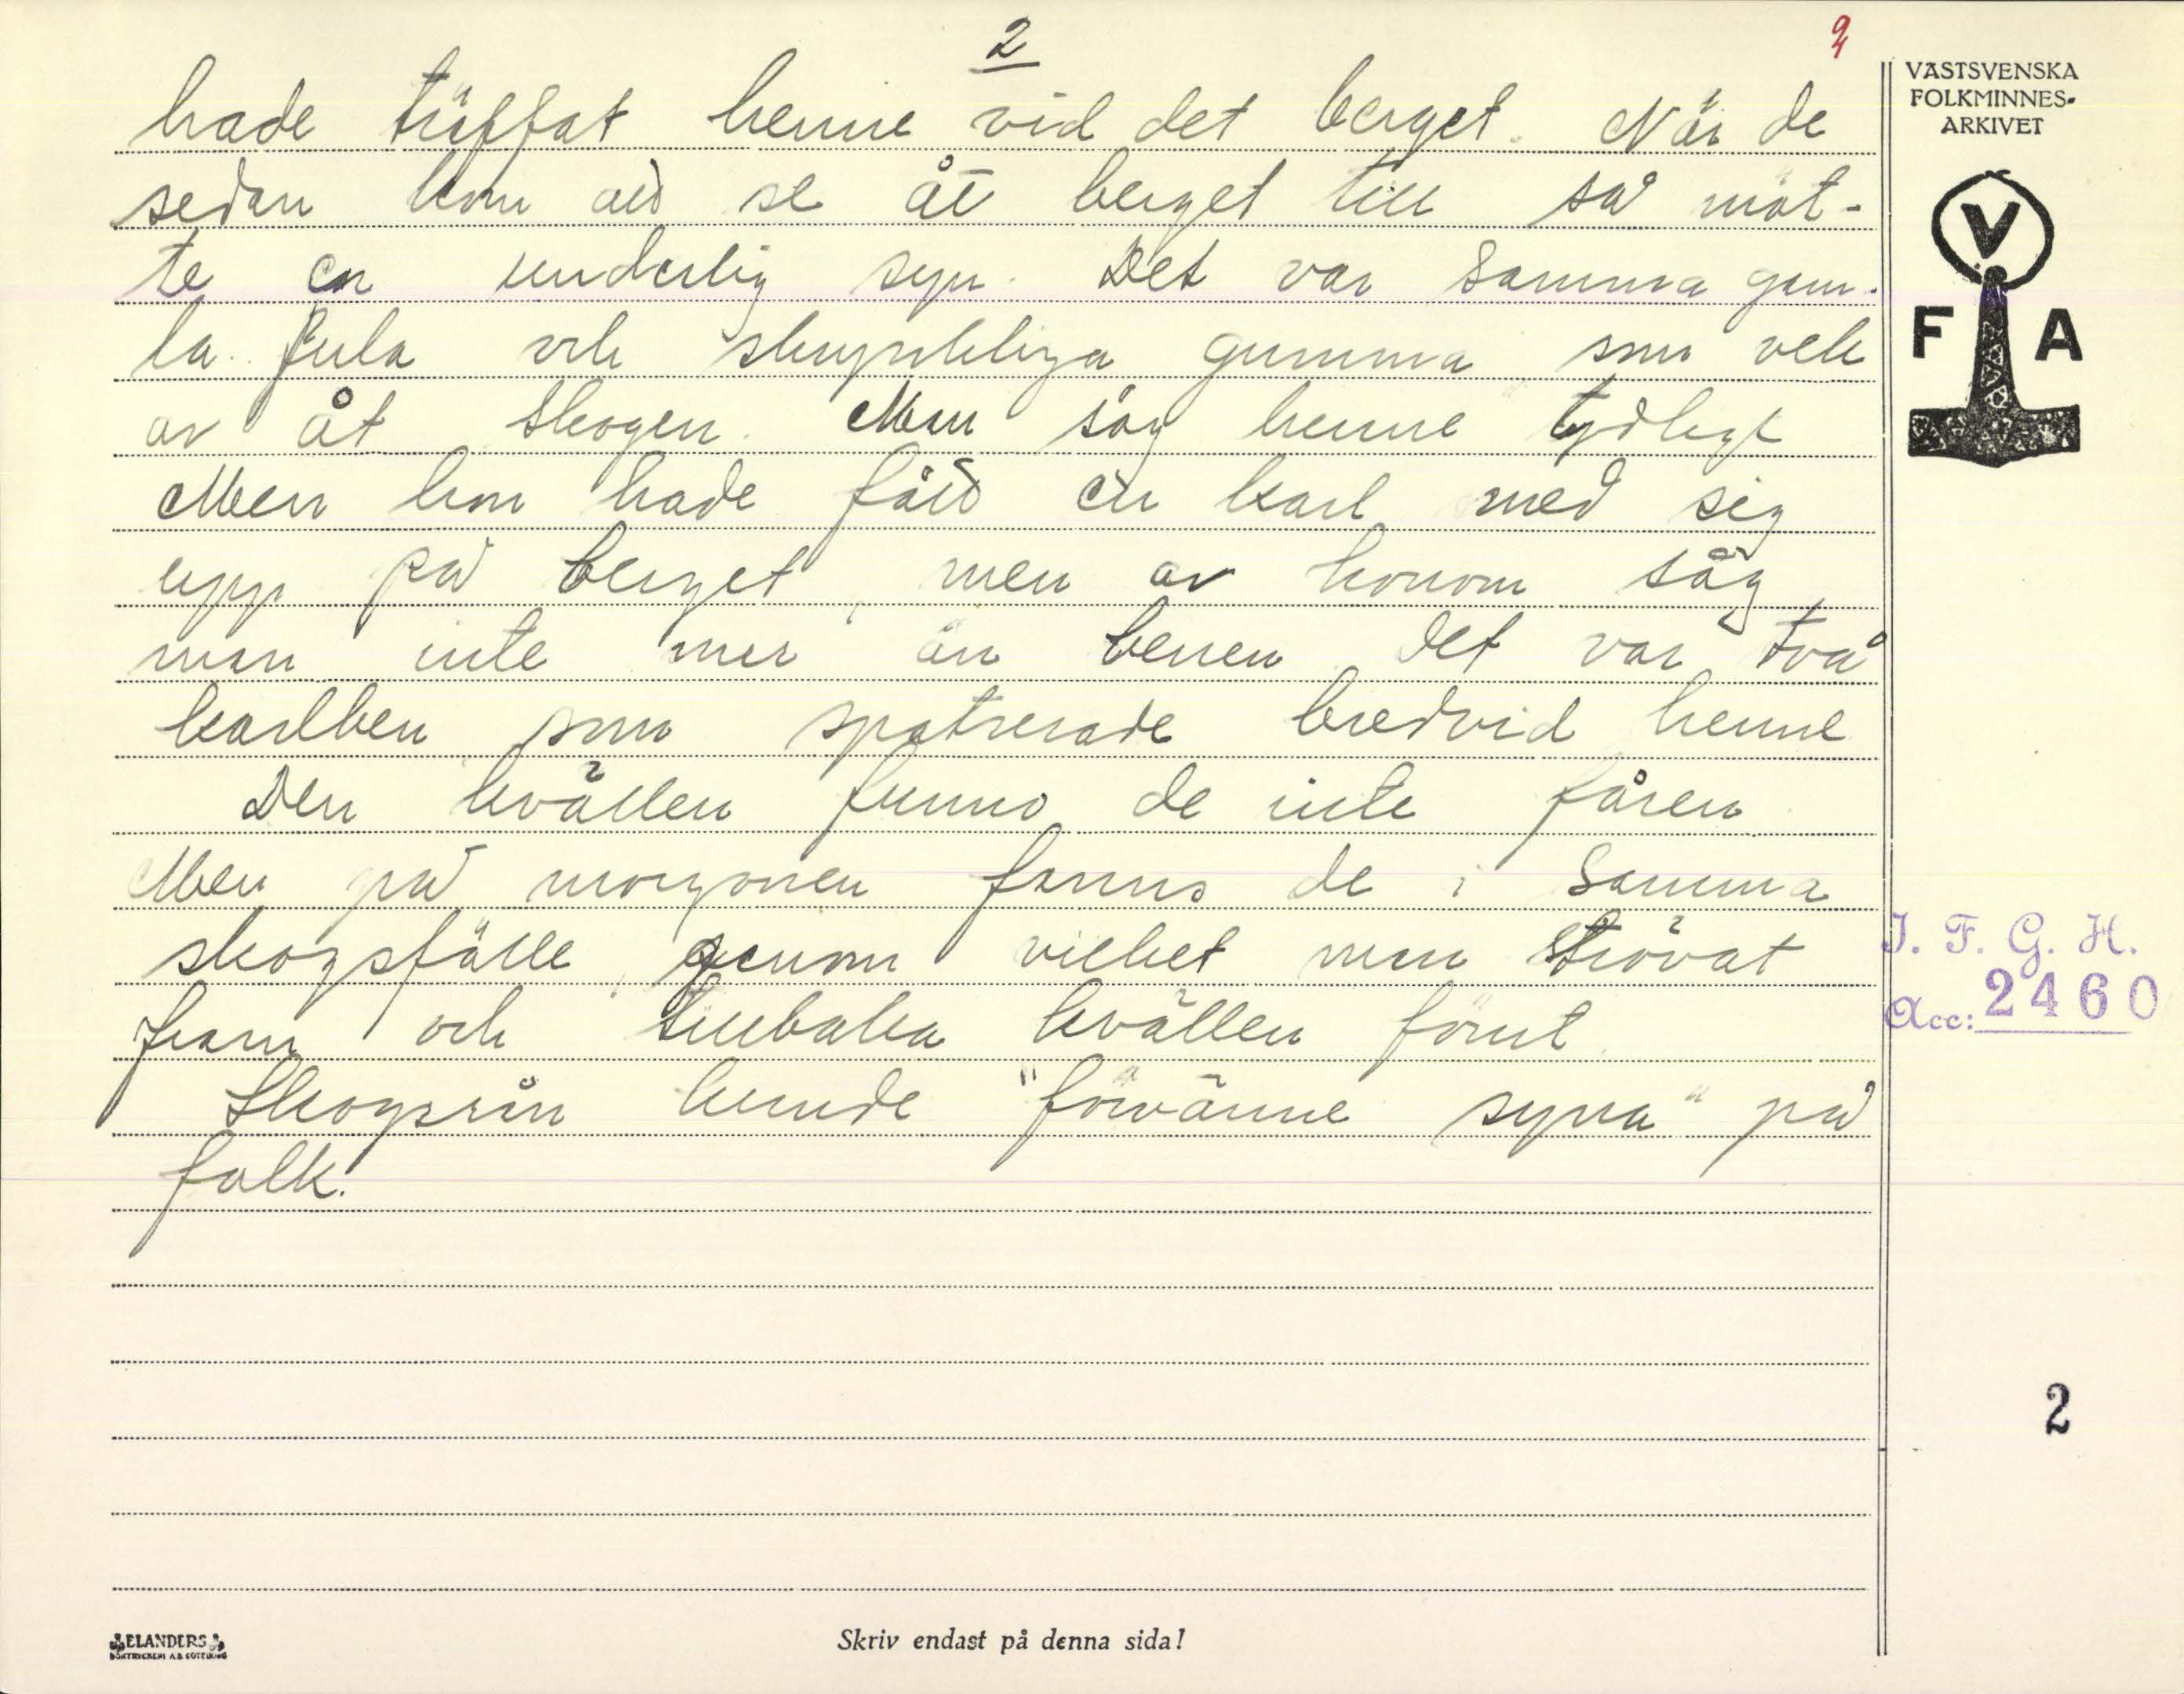 2
2
hade träffat henne vid det berget. När de
sedan kom att se åt berget till så möt-
te en underlig syn. Det var samma gam-
la fula och skrynkliga gumma som vek
av åt skogen. Man såg henne tydligt
Men hon hade fått en karl med sig
upp på berget, men av honom såg
man inte mer än benen det var två
karlben som spatserade bredvid henne
Den kvällen funno de inte fåren
Men på morgonen fanns de i samma
skogsfälle, genom vilket man strövat
fram och tillbaka kvällen förut.
Skogsrån kunde "förvänne syna" på
folk.
VÄSTSVENSKA
FOLKMINNES-
ARKIVET
V
F A
I. F. G. H.
Acc: 2460
2
ELANDERS
BOKTRYCKERI A.B. GÖTEBORG
Skriv endast på denna sida!